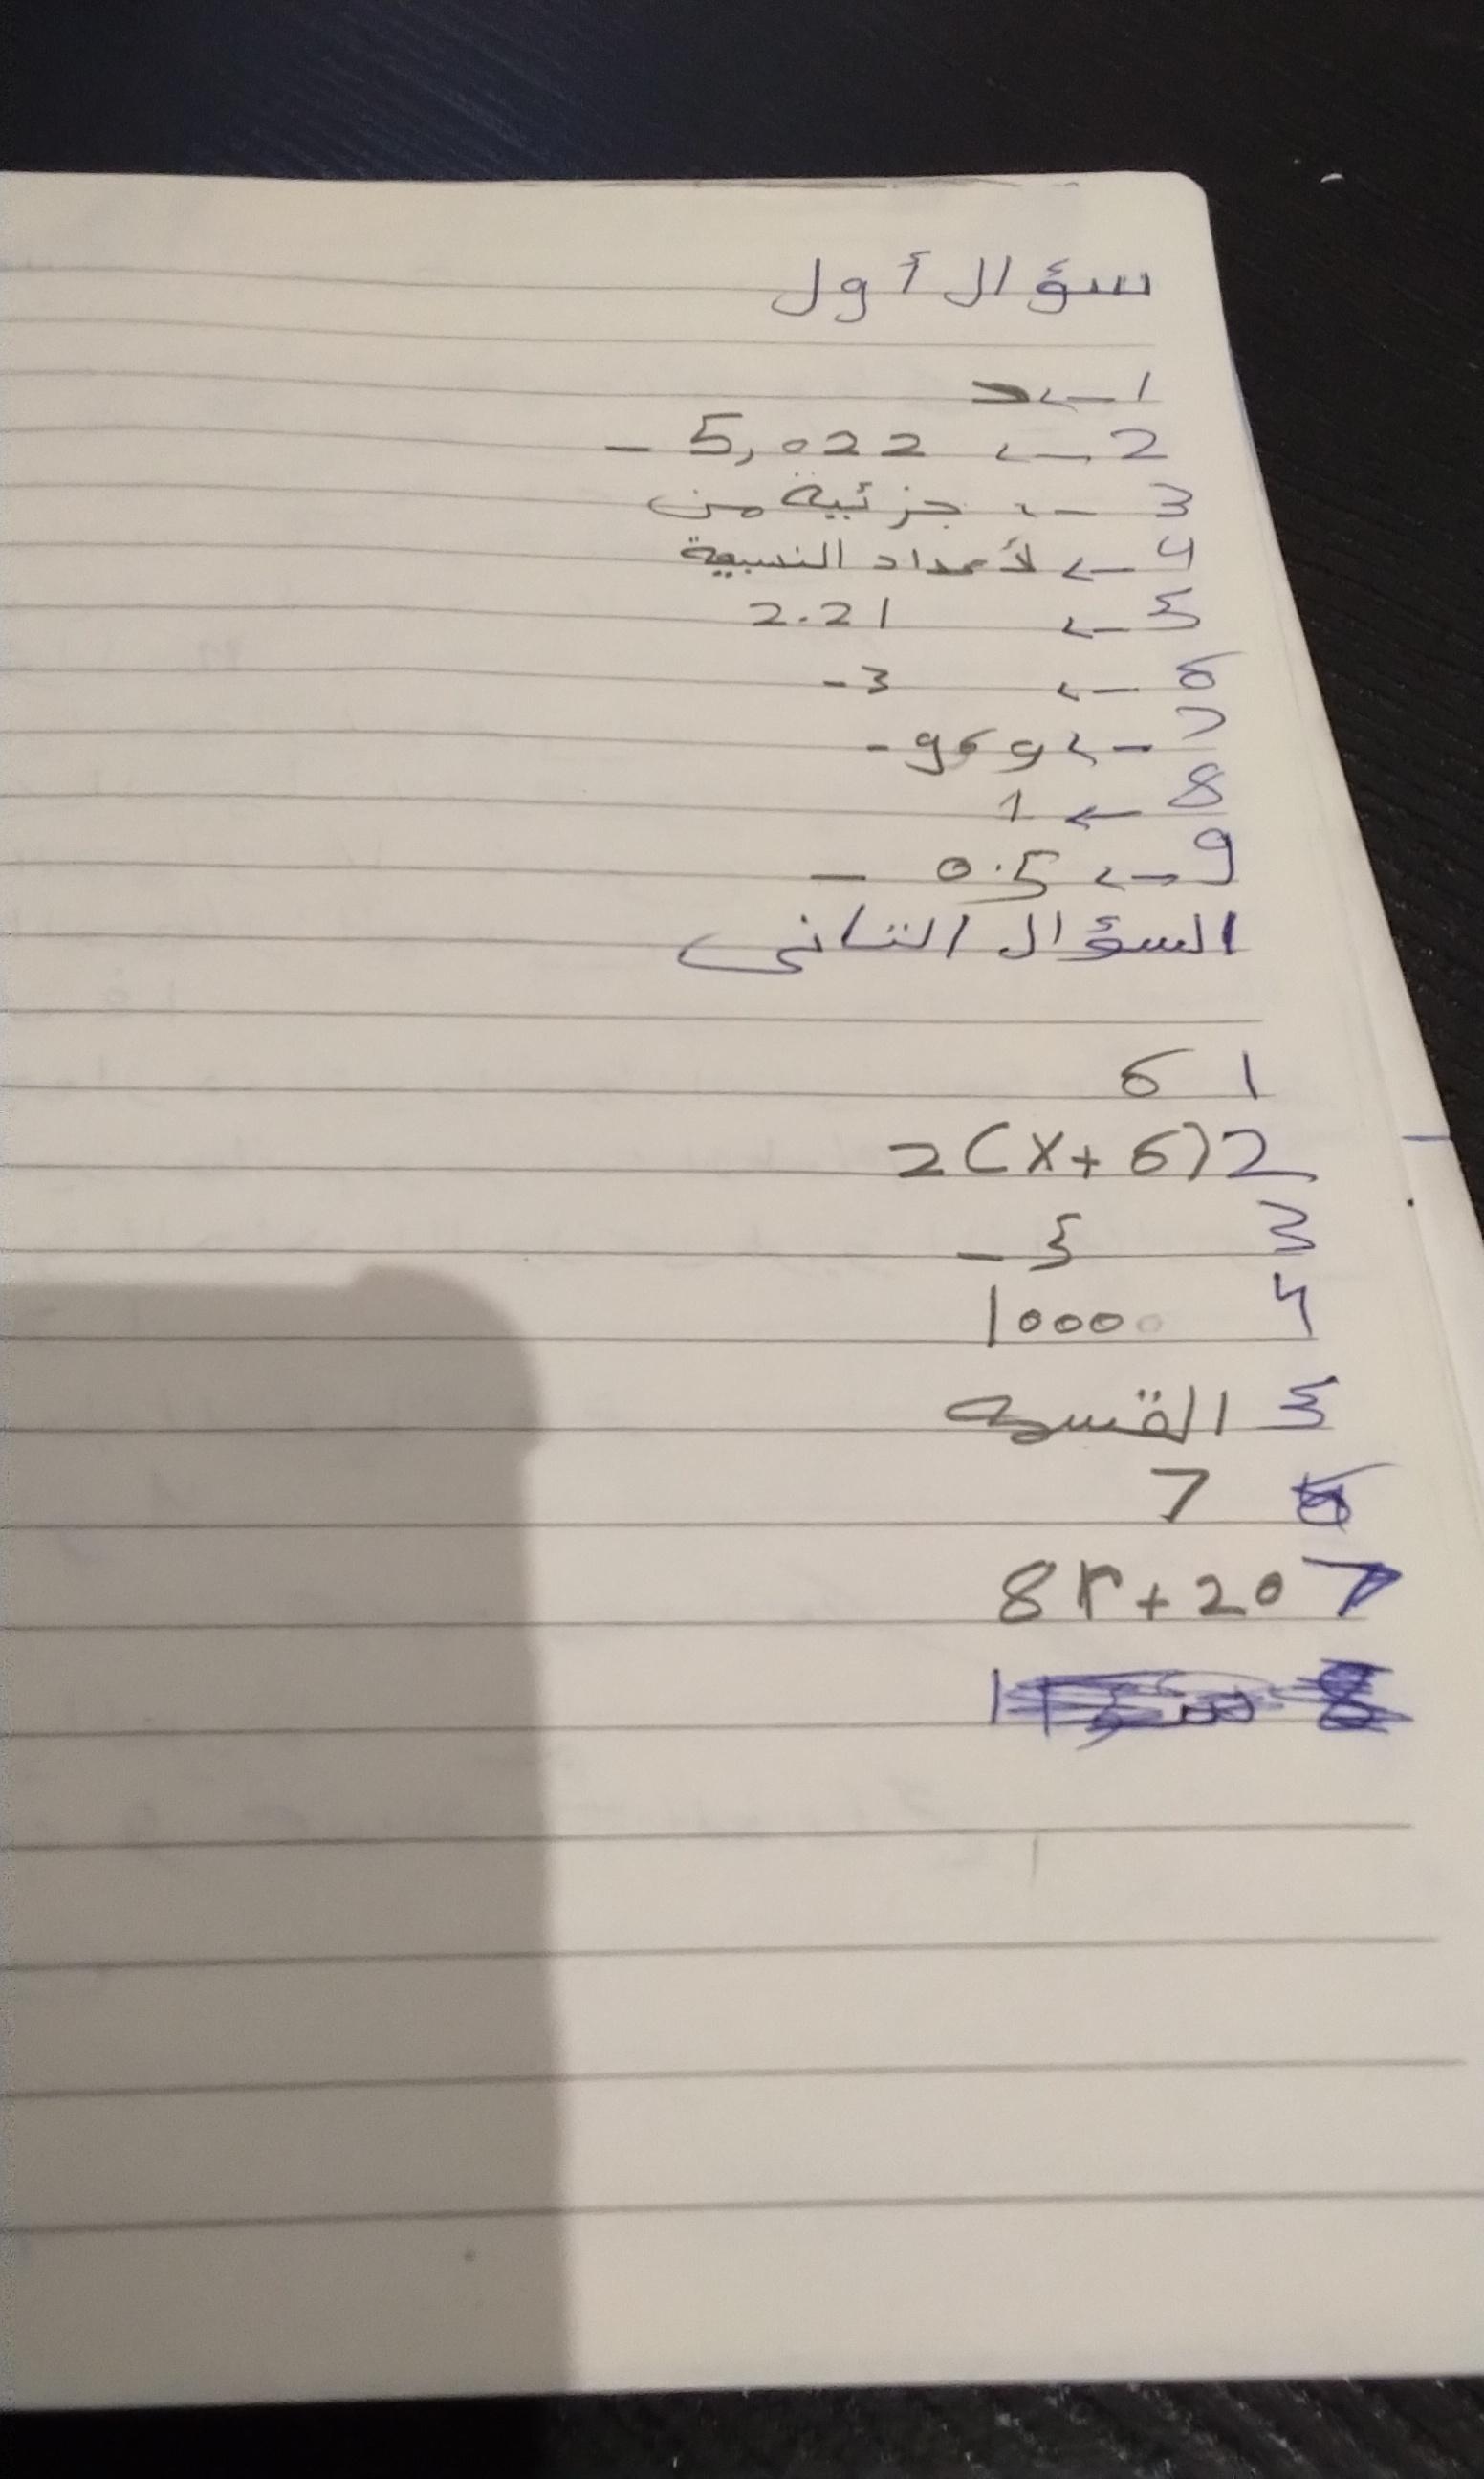 سؤال أول
1 ← >
2 ← 5,022 -
3 ← جزئية من
4 ← لأعداد النسبية
5 ← 2.21
6 ← -3
7 ← 9 ، 9-
8 ← 1
9 ← 0.5 -
السؤال الثانى
1 6
2 2(x+6)
3 -5
4 10000
5 القسمه
6 7
7 8r+20
8